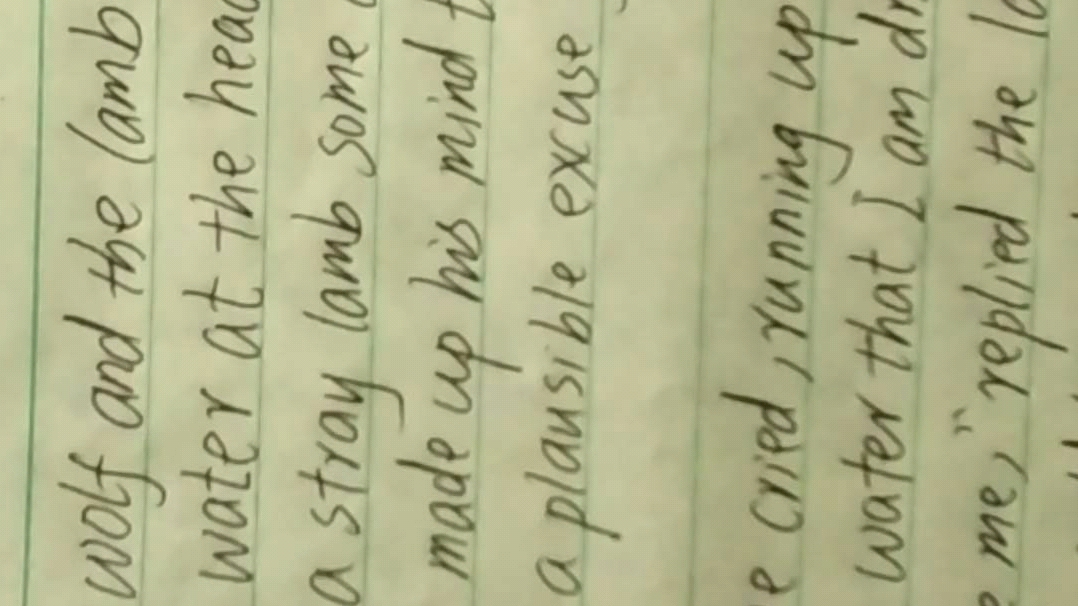 wolf and the lamb
water at the head
a stray lamb some
made up his mind
a plausible excuse
cried, running up
water that I am
me," replied the